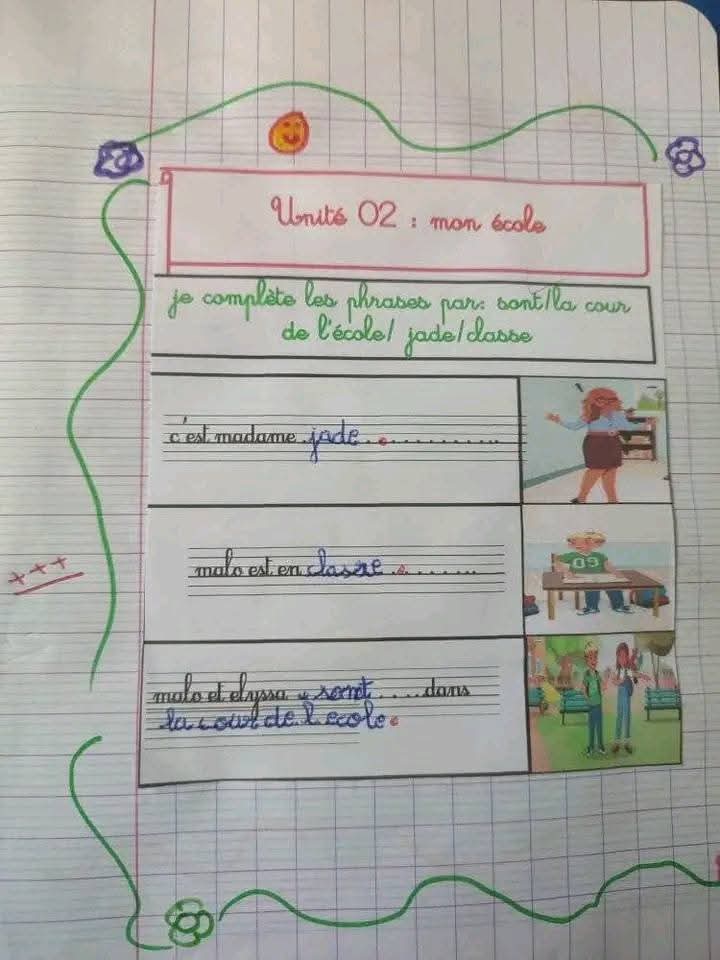 Unité 02 : mon école
je complète les phrases par: sont/la cour
de l'école/ jade/classe
c'est madame jade. ..........
malo est en classe. ........
09
+++
malo et elyssa .. sont ....dans
la cour de l'ecole.